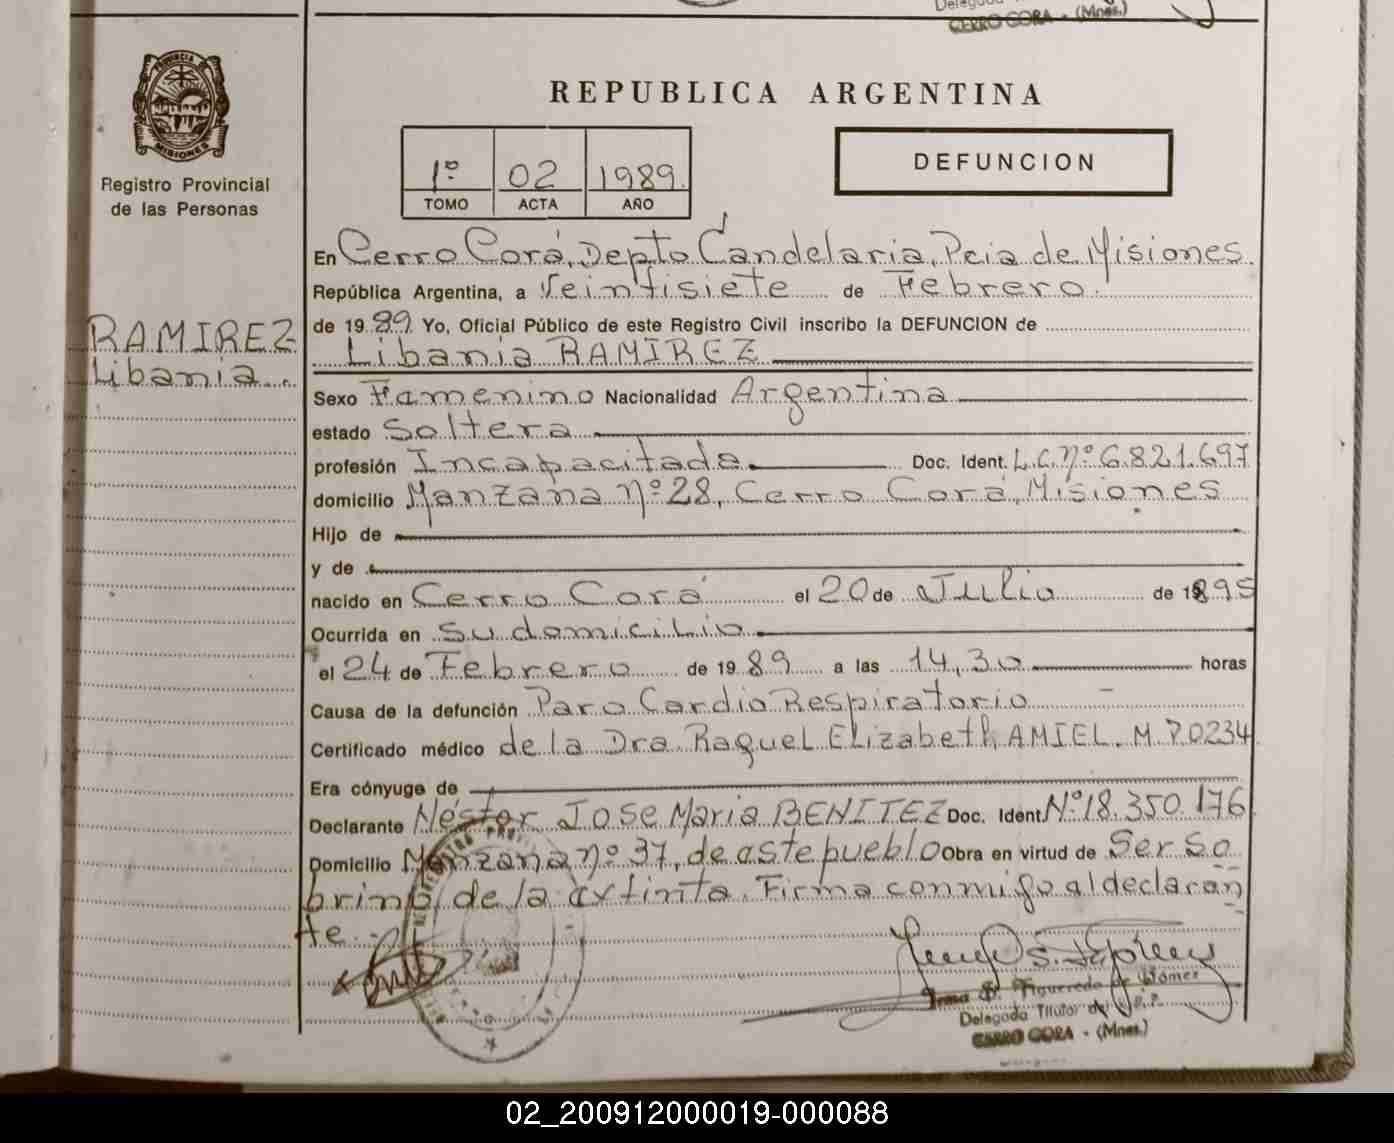 Delegada
CERRO CORA - (Mnes.)
PROVINCIA DE
MISIONES
Registro Provincial
de las Personas
RAMIREZ
Libania..
REPUBLICA ARGENTINA
1º 02 1989.
TOMO ACTA AÑO
DEFUNCION
En Cerro Corá, Depto Candelaria, Pcia de Misiones.
República Argentina, a Veintisiete de Febrero.
de 1989 Yo, Oficial Público de este Registro Civil inscribo la DEFUNCION de
Libania RAMIREZ
Sexo Famenino Nacionalidad Argentina
estado Soltera
profesión Incapacitada. Doc. Ident. L.C.Nº 6.821.697
domicilio Manzana Nº 28, Cerro Corá, Misiones
Hijo de
y de
nacido en Cerro Corá el 20 de Julio de 1895
Ocurrida en su domicilio
el 24 de Febrero de 1989 a las 14,30 horas
Causa de la defunción Paro Cardio Respiratorio
Certificado médico de la Dra. Raquel Elizabeth AMIEL. M.P.0234
Era cónyuge de
Declarante Néstor Jose Maria BENITEZ Doc. Ident. Nº 18.350.176
Domicilio Manzana nº 37, de este pueblo Obra en virtud de Ser so
brino de la extinta. Firma conmigo al declaran
te.-
Irma S. Figueredo de Gómez
Delegada Titular de R.P.P.
CERRO CORA - (Mnes.)
02_200912000019-000088